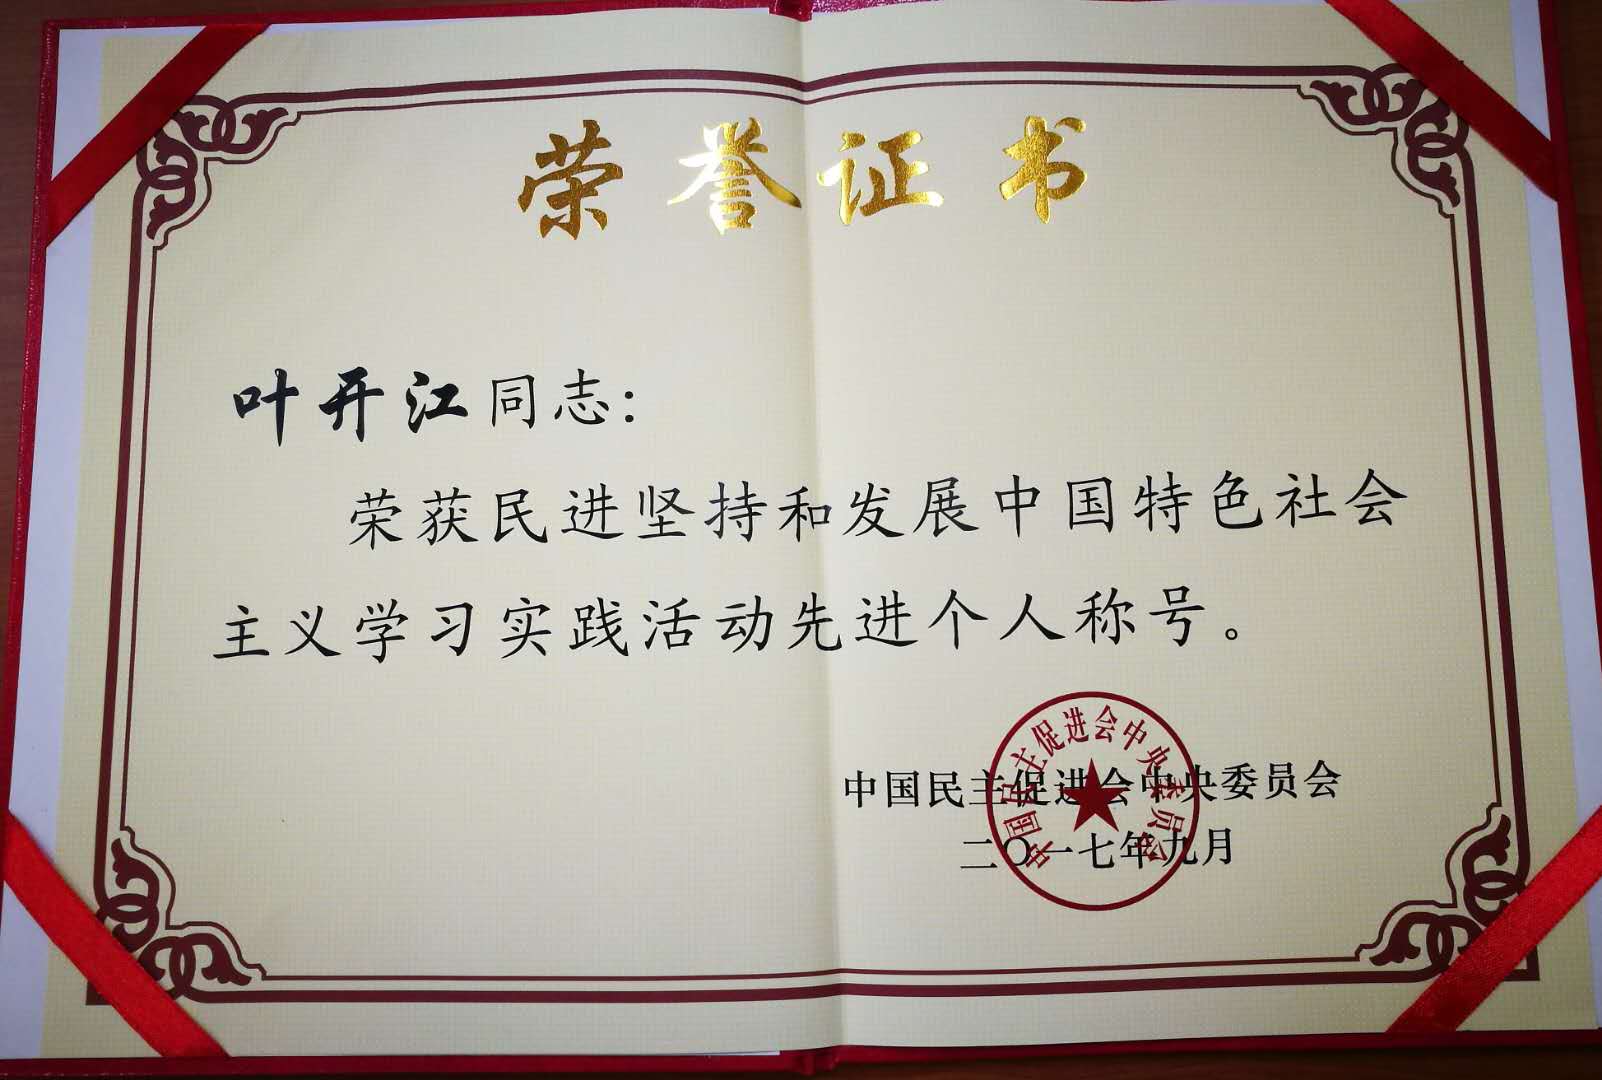 荣誉证书
叶开江同志:
荣获民进坚持和发展中国特色社会
主义学习实践活动先进个人称号。
中国民主促进会中央委员会
二〇一七年九月
中国民主促进会中央委员会